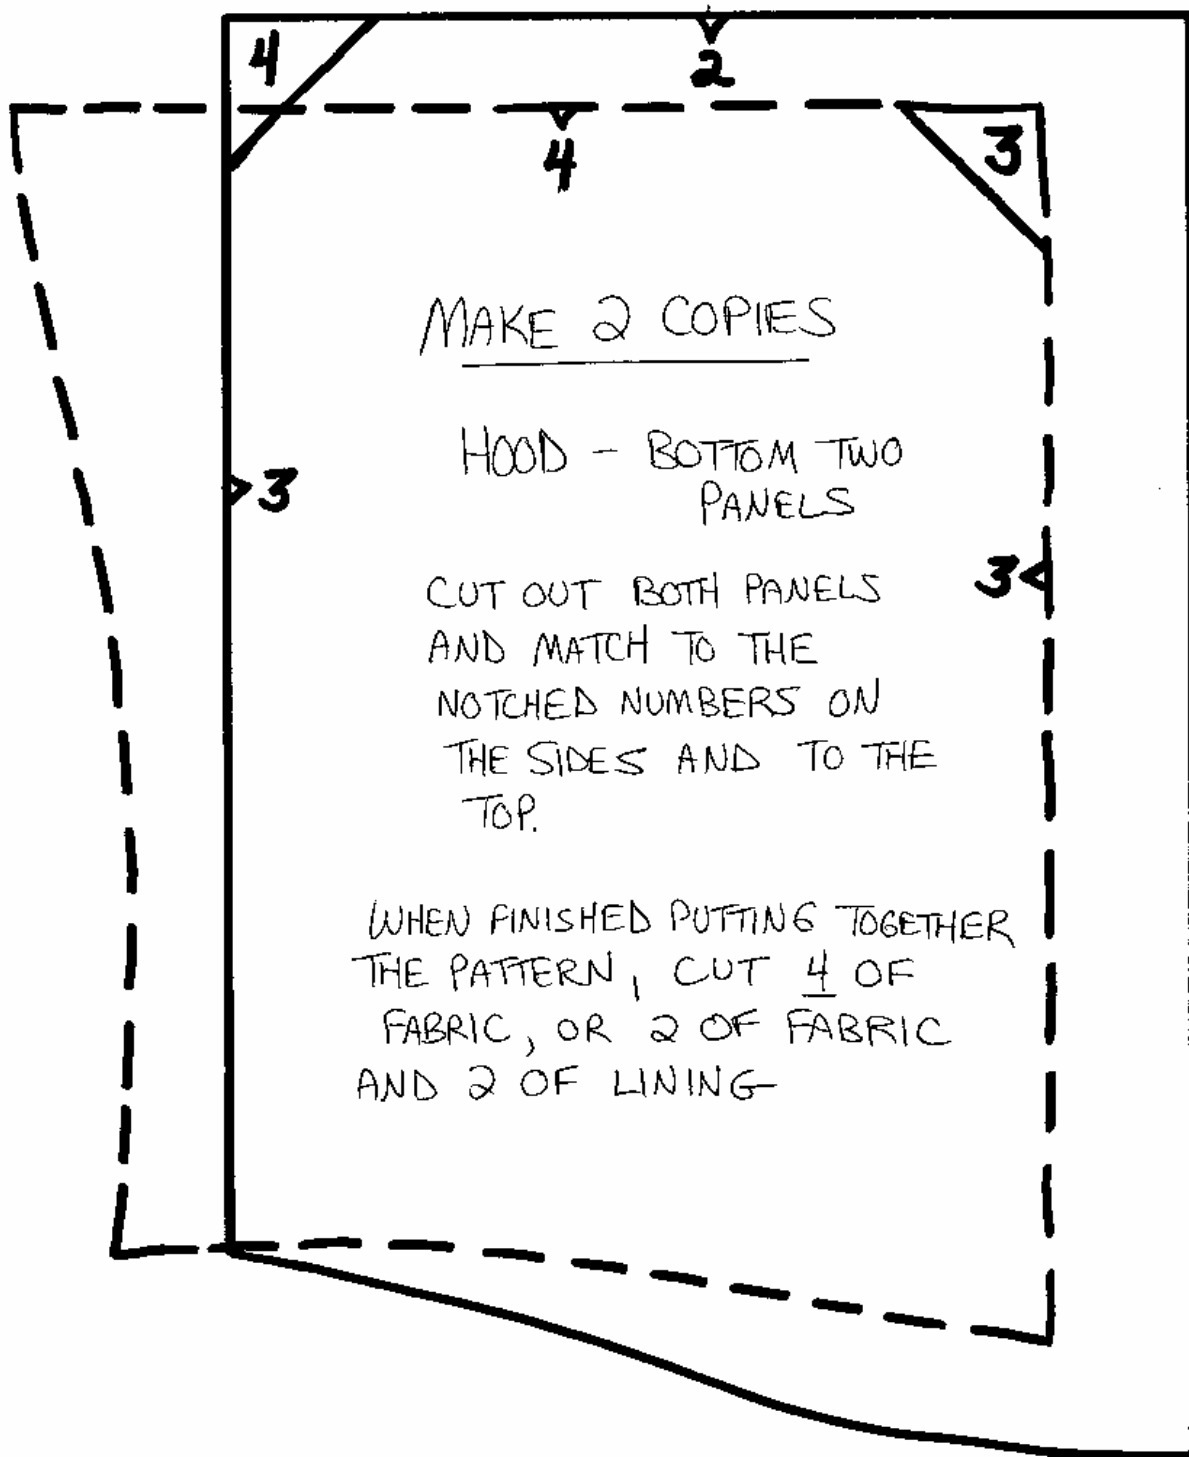 4
2
4
3
MAKE 2 COPIES
HOOD - BOTTOM TWO
PANELS
3
3
CUT OUT BOTH PANELS
AND MATCH TO THE
NOTCHED NUMBERS ON
THE SIDES AND TO THE
TOP.
WHEN FINISHED PUTTING TOGETHER
THE PATTERN, CUT 4 OF
FABRIC, OR 2 OF FABRIC
AND 2 OF LINING